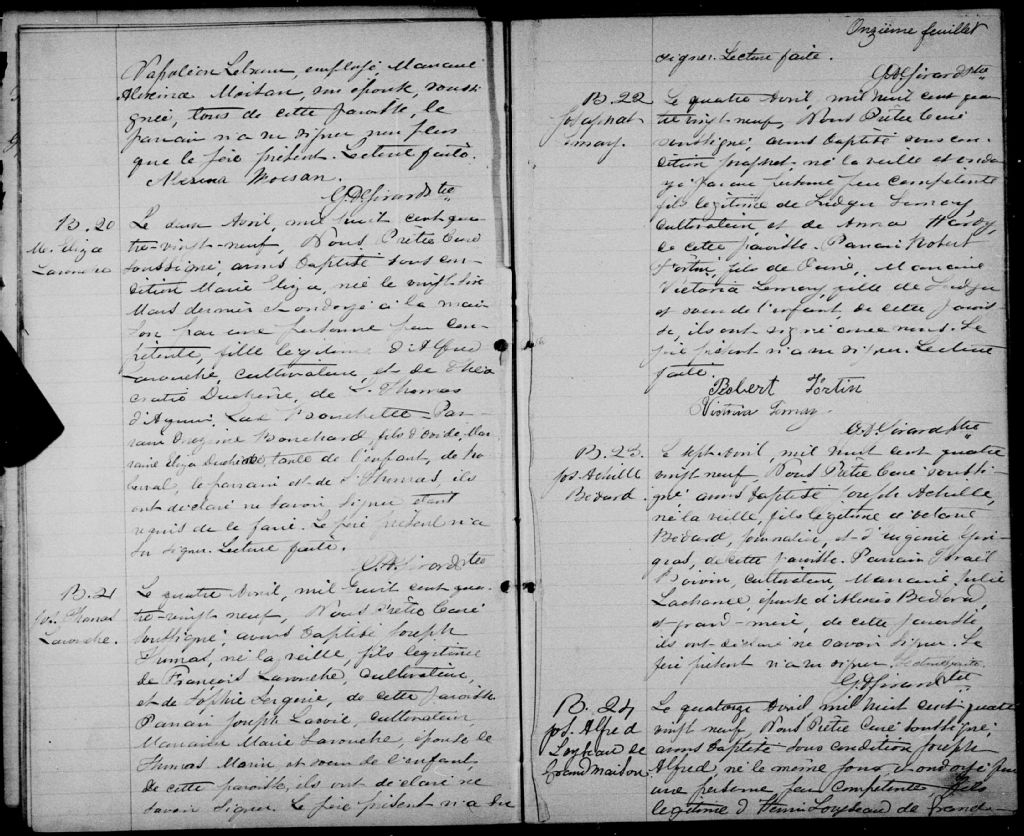 Napoléon Lebrun, employé, Marraine
Alexina Moisan, son épouse, sous-
signée, tous de cette paroisse, le
parrain n'a su signer non plus
que le père présent. Lecture faite.
Alexina Moisan.
G.D. Girard Ptre
B. 20
M. Eliza
Larouche
Le deux Avril, mil huit cent qua-
tre-vingt-neuf, Nous Prêtre Curé
soussigné, avons baptisé sous con-
dition Marie Eliza, née le vingt six
Mars dernier et ondoyé à la mai-
son par une personne peu com-
pétente, fille légitime d'Alfred
Larouche, cultivateur, et de
Duchène, de St Thomas
Lac Bouchette. Par-
rain Onezime Bouchard, fils d'Ovide, Mar-
raine Eliza Duchène, tante de l'enfant, de Ro-
berval, le parrain et de St Thomas, ils
ont déclaré ne savoir signer étant
requis de le faire. Le père présent n'a
su signer. Lecture faite.
G.D. Girard Ptre
B. 21
Jos. Thomas
Larouche.
Le quatre Avril, mil huit cent qua-
tre-vingt neuf, Nous Prêtre Curé
soussigné avons baptisé Joseph
Thomas, né la veille, fils légitime
de François Larouche, cultivateur,
et de Sophie de cette paroisse.
Parrain Joseph Lavoie, cultivateur,
Marraine Marie Larouche, épouse de
Thomas Morin et soeur de l'enfant,
de cette paroisse, ils ont déclaré ne
savoir signer. Le père présent n'a su
Onzième feuillet
signer. Lecture faite.
G.D. Girard Ptre
B. 22
Josaphat
Lemay.
Le quatre Avril, mil huit cent qua-
tre vingt neuf, Nous Prêtre Curé
soussigné, avons baptisé sous con-
dition Josaphat, né la veille et ondo-
yé par une personne peu compétente
fils légitime de Ludger Lemay
cultivateur, et de Anna Hardy,
de cette paroisse. Parrain Robert
Fortin, fils de Marraine
Victoria Lemay, fille de Ludger
et soeur de l'enfant, de cette parois-
se, ils ont signé avec nous. Le
père présent n'a su signer. Lecture
faite.
Robert Fortin
Victoria Lemay
G.D. Girard Ptre
B. 23.
Jos. Achille
Bédard.
Le sept Avril, mil huit cent quatre
vingt neuf, Nous Prêtre Curé soussi-
gné avons baptisé Joseph Achille,
né la veille, fils légitime d'Octave
Bédard, journalier, et d'Eugénie Gin-
gras, de cette paroisse. Parrain Israël
Boivin, cultivateur, Marraine Julie
Lachance, épouse d'Alexis Bédard,
et grand-mère, de cette paroisse
ils ont déclaré ne savoir signer. Le
père présent n'a su signer. Lecture faite.
G.D. Girard Ptre
B. 24
Jos. Alfred
Loyseau de
Grandmaison.
Le quatorze Avril, mil huit cent quatre
vingt neuf, Nous Prêtre Curé soussigné,
avons baptisé sous condition Joseph
Alfred, né le même jour, et ondoyé par
une personne peu compétente, fils
légitime d'Henri Loyseau de Grand-